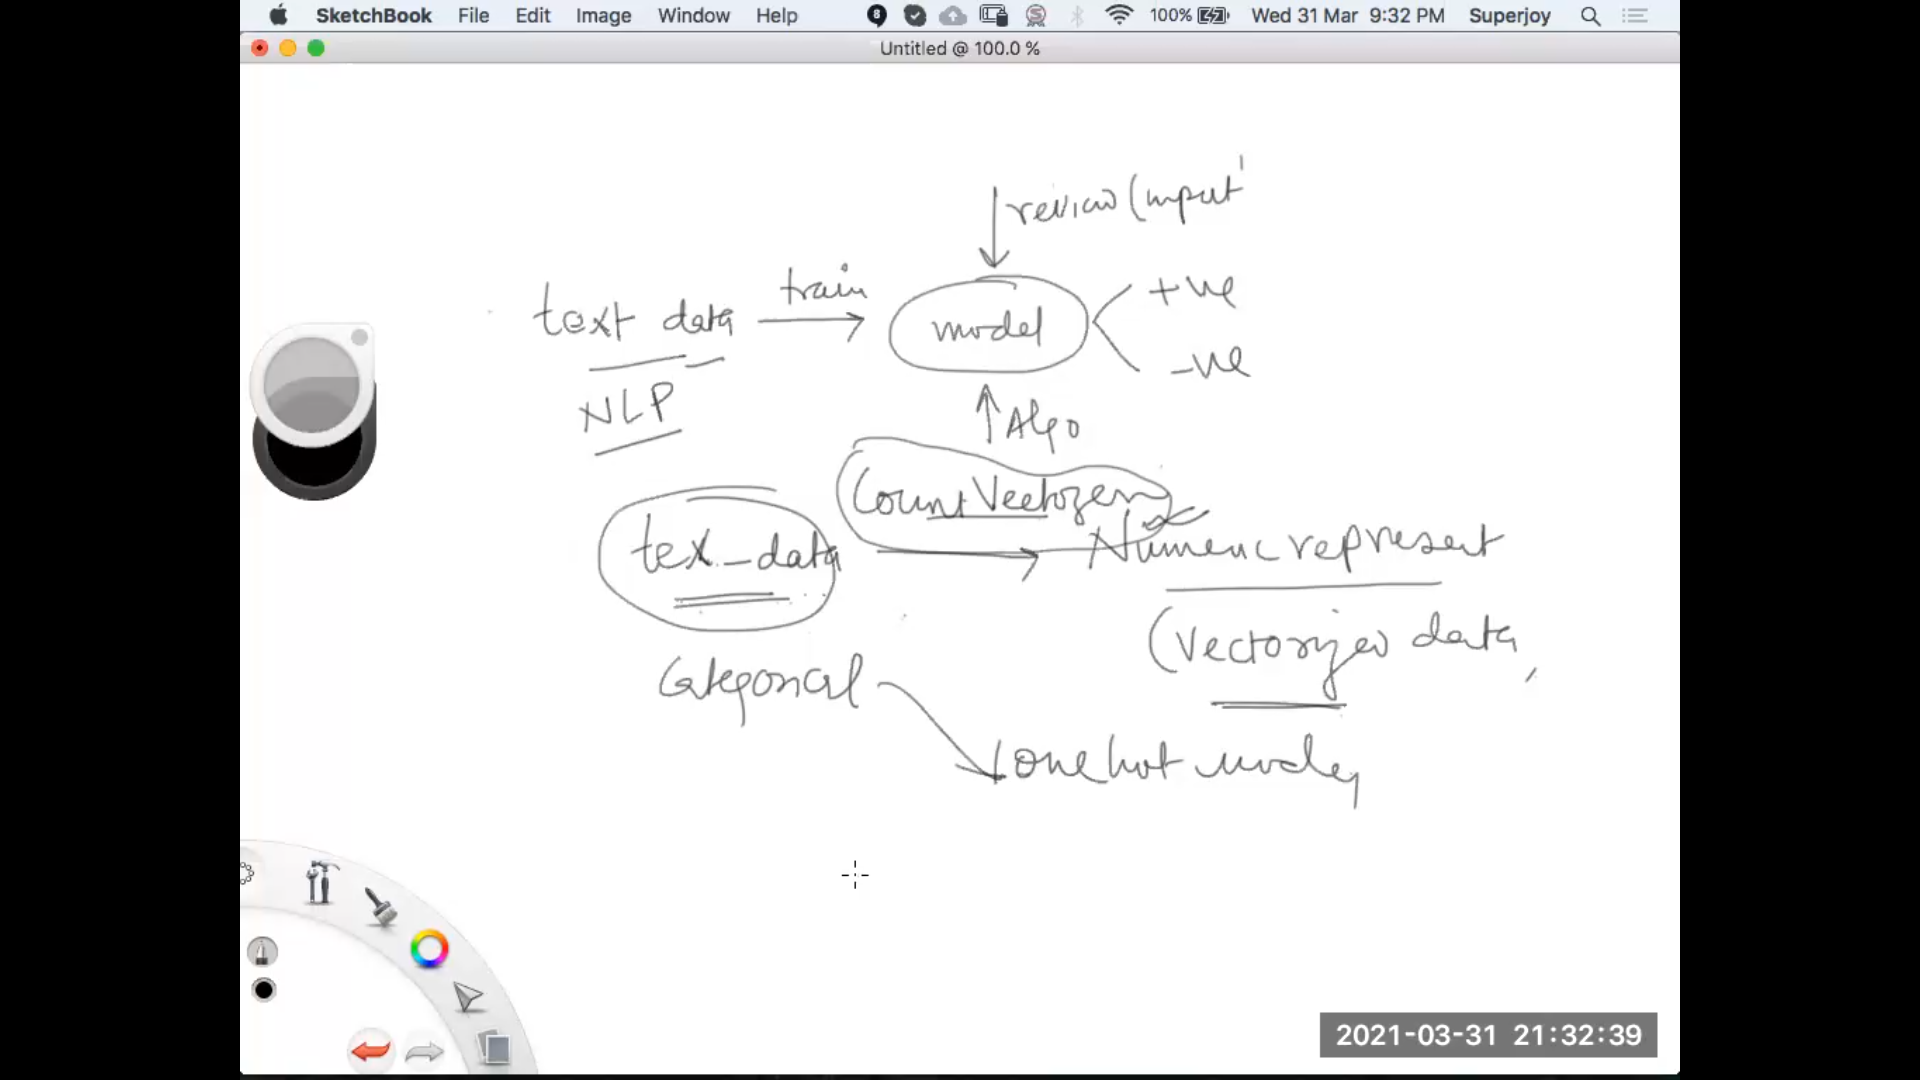 SketchBook File Edit Image Window Help 8 100% Wed 31 Mar 9:32 PM Superjoy
Untitled @ 100.0 %
review (input
train
text data model +ve
-ve
NLP
Algo
Count Vectozer
tex_data Numeric represent
(Vectorized data
Categorical
one hot
2021-03-31 21:32:39